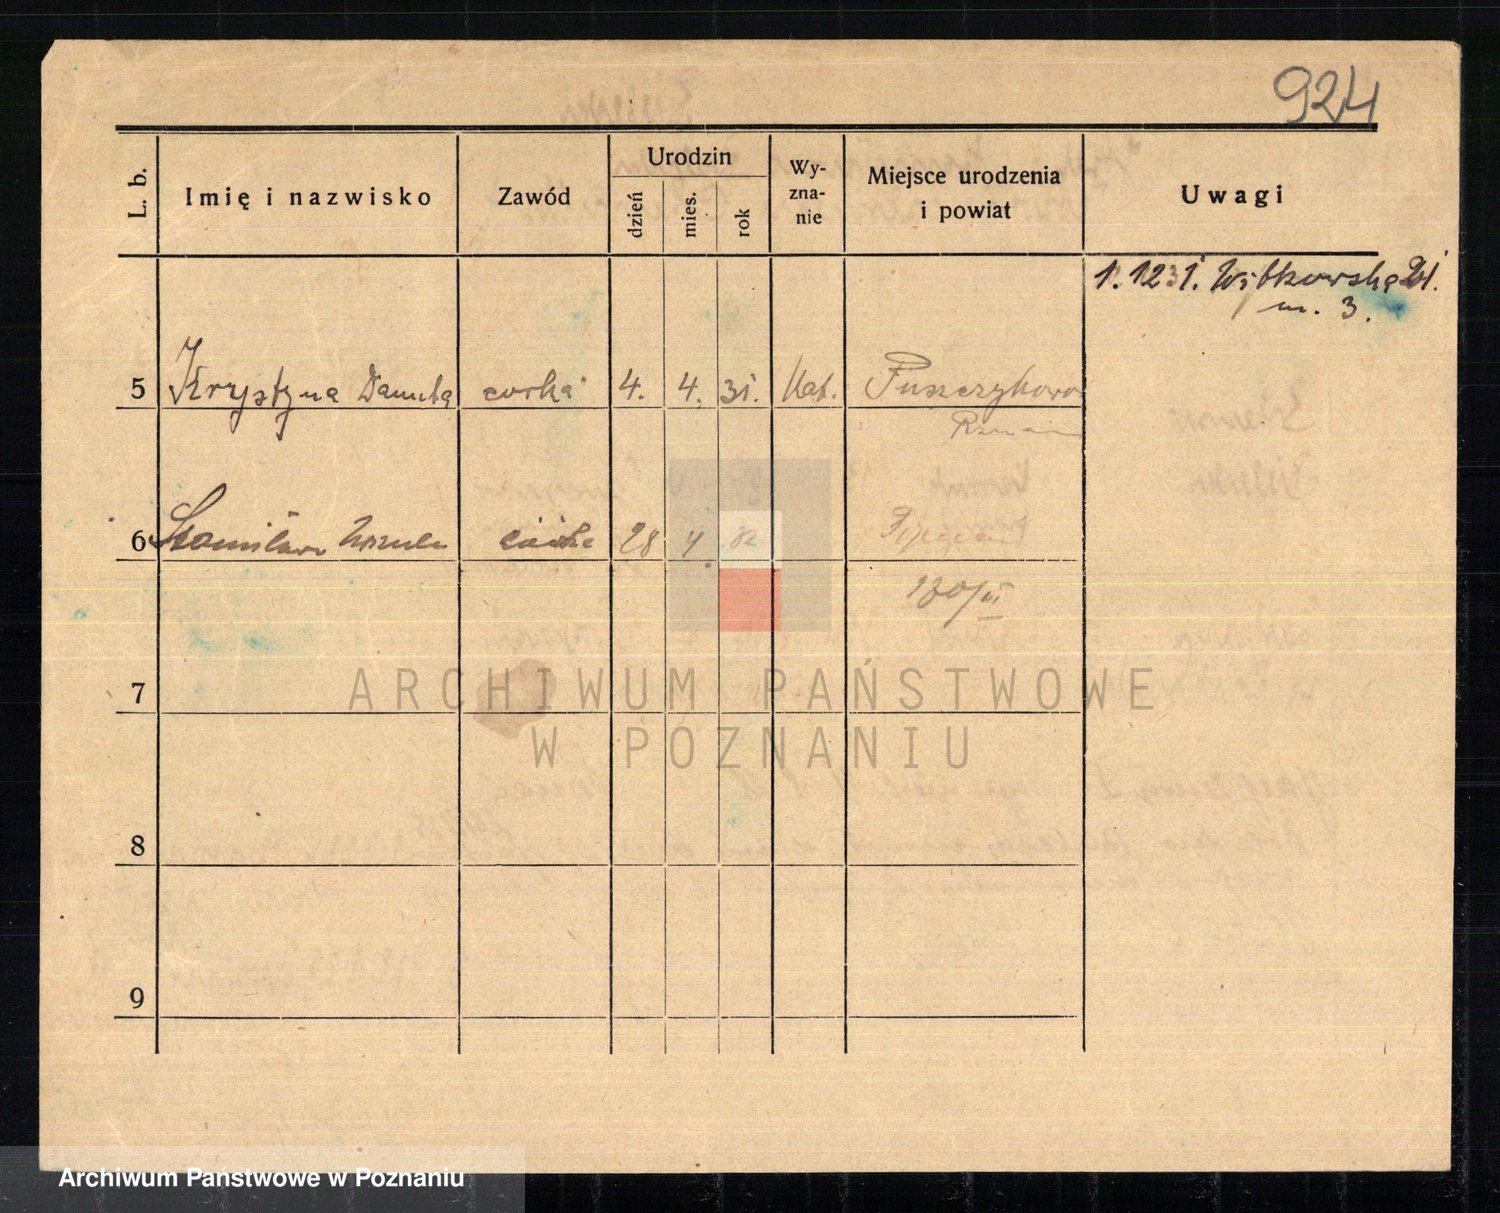 924
L. b.
Imię i nazwisko
Zawód
Urodzin
dzień
mies.
rok
Wy-
zna-
nie
Miejsce urodzenia
i powiat
Uwagi
1. 12 31. Witkowska 21.
m. 3.
5 Krystyna Danuta córka 4. 4. 31. kat. Puszczykowo
Poznań
6 Stanisława Urszula córka 28 4 32
180/III
7
8
9
ARCHIWUM PAŃSTWOWE
W POZNANIU
Archiwum Państwowe w Poznaniu